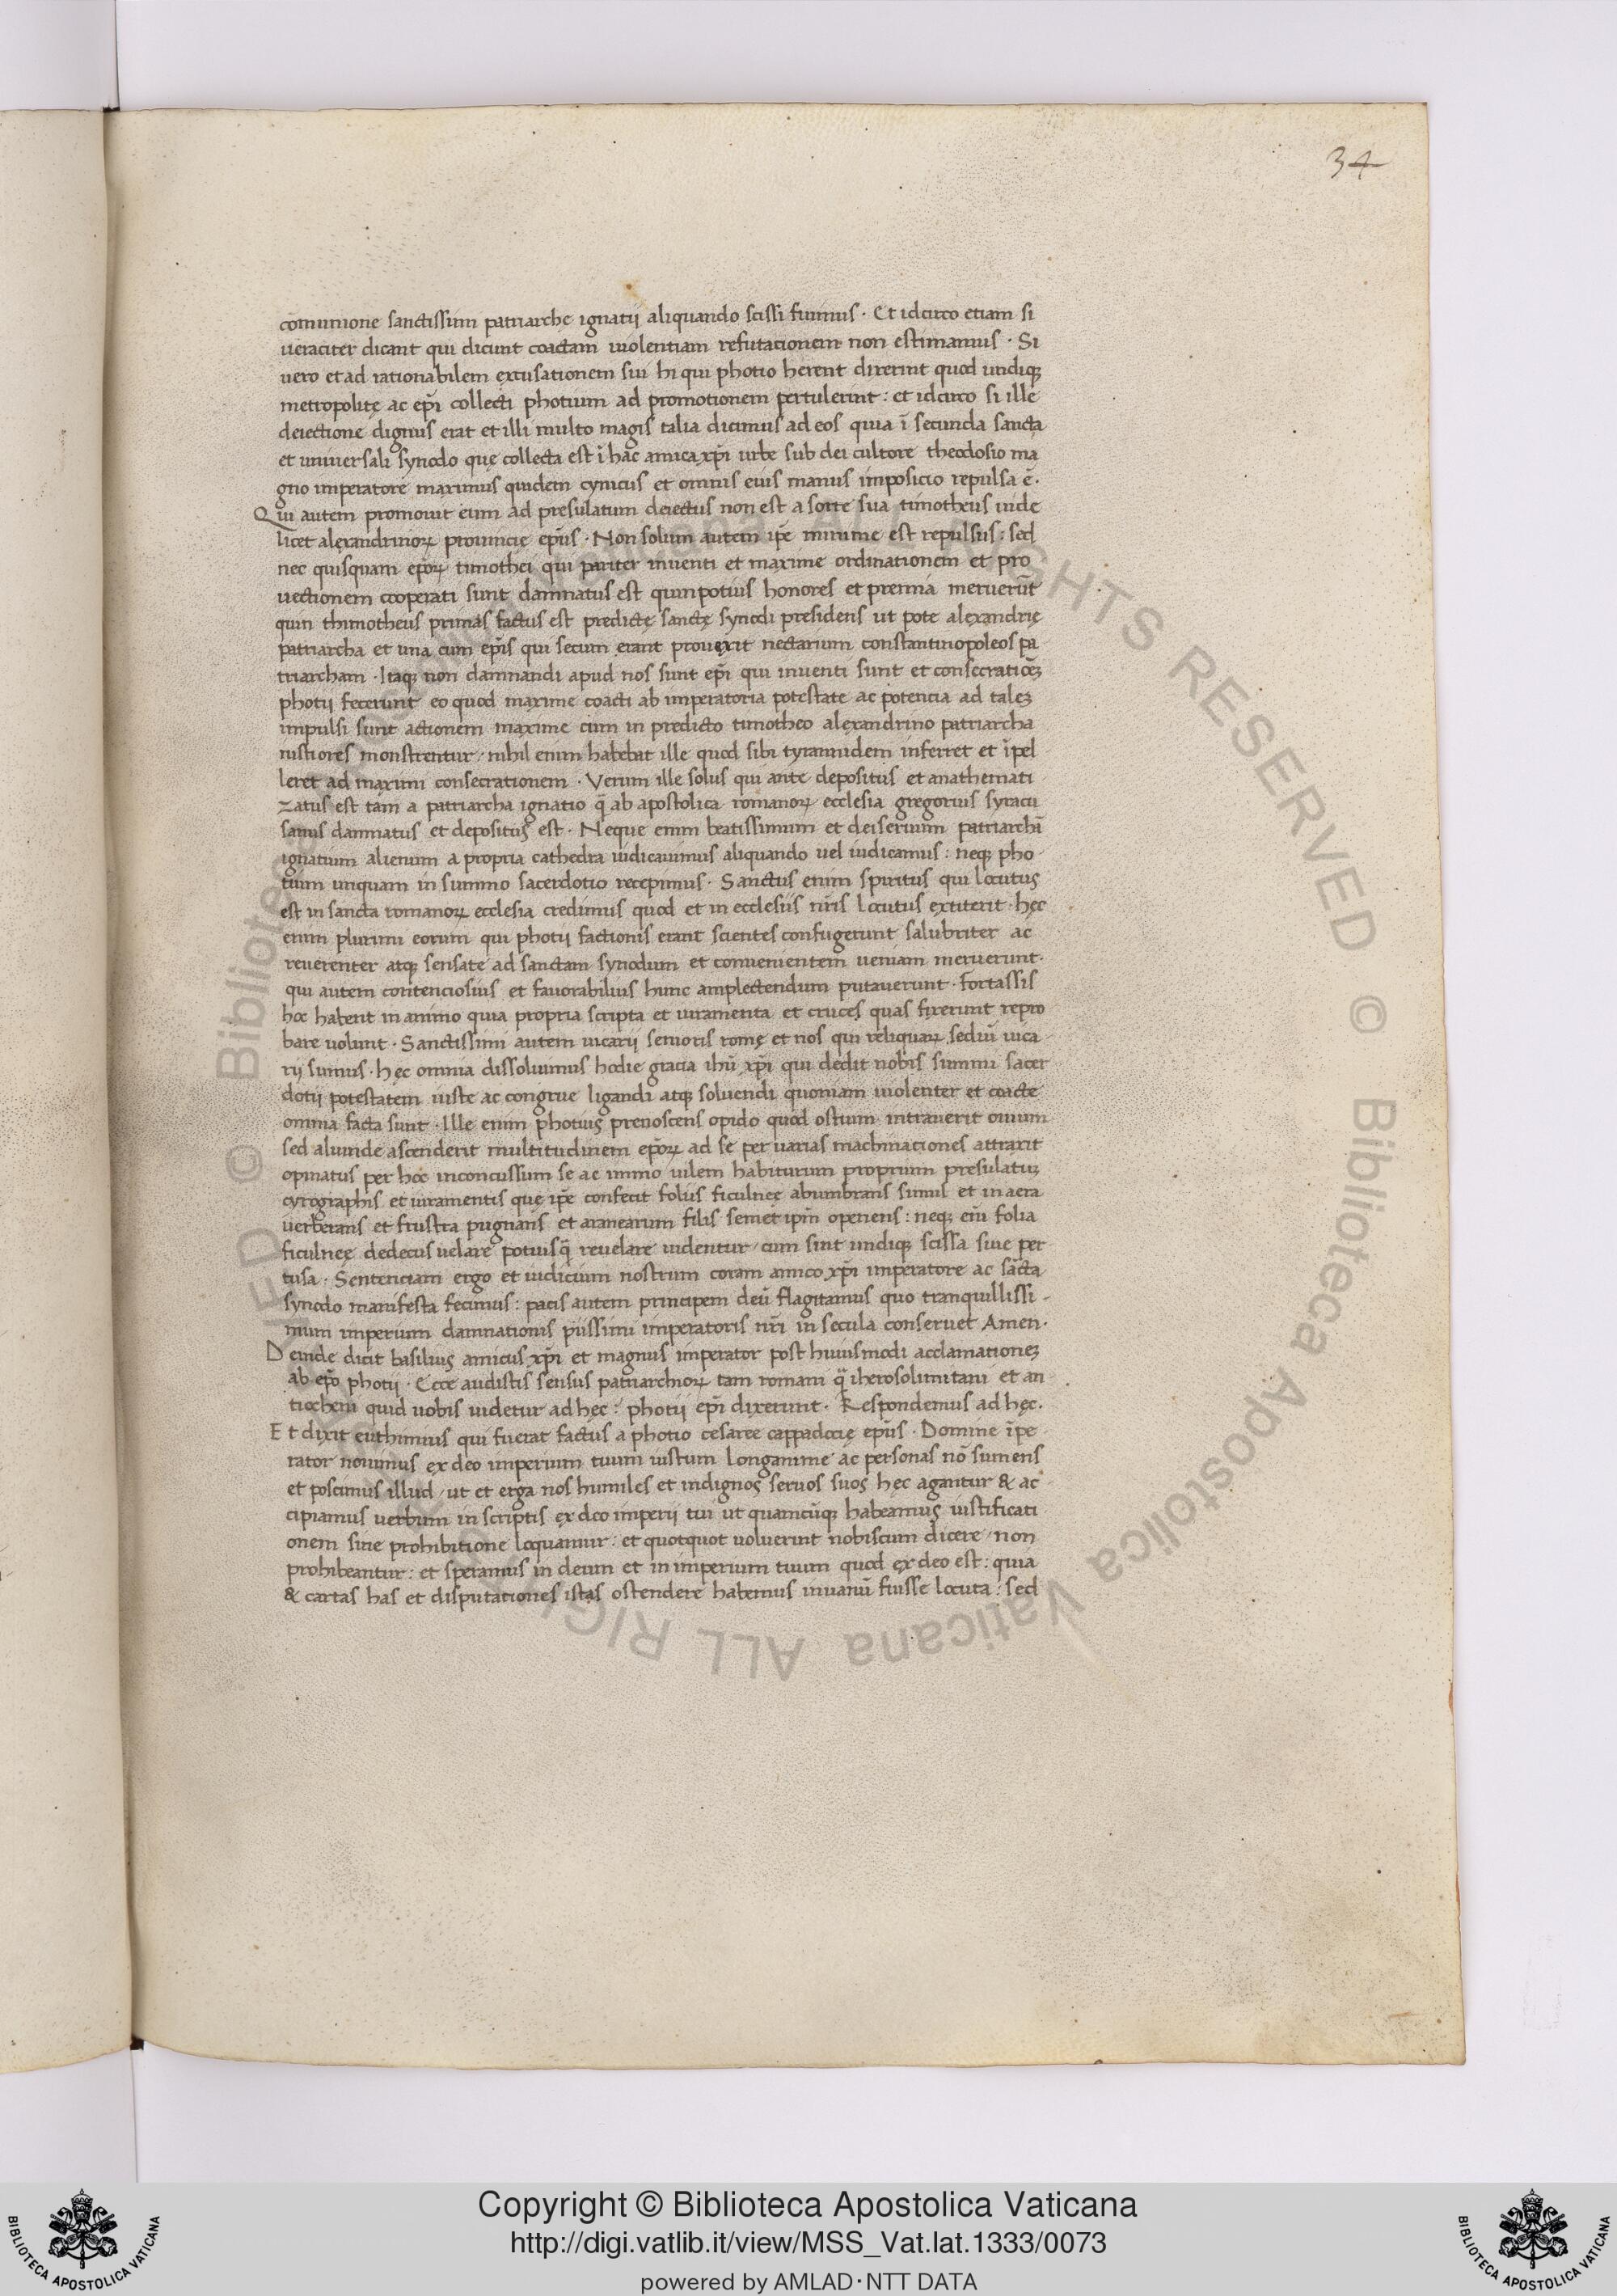 34
comunione sanctissimi patriarchę ignatij aliquando scissi fuimus · Et idcirco etiam si
ueraciter dicant qui dicunt coactam uiolentiam refutacionem non estimamus · Si
uero et ad rationabilem excusationem sui hi qui photio herent dixerint quod undiqꝫ
metropolitę ac ep̄i collecti photium ad promotionem pertulerint : et idcirco si ille
deiectione dignus erat et illi multo magis talia dicimus ad eos quia ī secunda sancta
et uniuersali synodo quę collecta est ī hāc amica xp̄i urbe sub dei cultore theodosio ma
gno imperatore maximus quidem cynicus et omnis eius manus imposicio repulsa ē ·
Qui autem promouit eum ad presulatum deiectus non est a sorte sua timotheus uide
licet alexandrinoꝝ prouincię ep̄us · Non solum autem ip̄e minime est repulsus : sed
nec quisquam ep̄oꝝ timothei qui pariter inuenti et maxime ordinationem et pro
uectionem cooperati sunt damnatus est quin potius honores et premia meruerūt
quin thimotheus primas factus est predictę sanctę synodi presidens ut pote alexandrię
patriarcha et una cum ep̄is qui secum erant prouexit nectarium constantinopoleos pa
triarcham · Itaqꝫ non damnandi apud nos sunt ep̄i qui inuenti sunt et consecraticēꝫ
photij fecerunt eo quod maxime coacti ab imperatoria potestate ac potencia ad taleꝫ
impulsi sunt actionem maxime cum in predicto timotheo alexandrino patriarcha
iustiores monstrentur · nihil enim habebat ille quod sibi tyrannidem inferret et īpel
leret ad maximi consecrationem · Verum ille solus qui ante depositus et anathemati
zatus est tam a patriarcha ignatio q̄ ab apostolica romanoꝝ ecclesia gregorius syracu
sanus damnatus et depositus est · Neque enim beatissimum et dei seruum patriarchā
ignatium alienum a propria cathedra iudicauimus aliquando uel iudicamus : neqꝫ pho
tium unquam in summo sacerdotio recepimus · Sanctus enim spiritus qui locutus
est in sancta romanoꝝ ecclesia credimus quod et in ecclesiis nr̄is locutus extiterit · hęc
enim plurimi eorum qui photij factionis erant scientes confugerunt salubriter ac
reuerenter atqꝫ sensate ad sanctam synodum et conuenientem ueniam meruerunt ·
qui autem contenciosius et fauorabilius hunc amplectendum putauerunt · fortassis
hoc habent in animo quia propria scripta et iuramenta et cruces quas fixerunt repro
bare uolunt · Sanctissimi autem uicarij senioris romę et nos qui reliquaꝝ sediū uica
rij sumus · hęc omnia dissoluimus hodie gracia ihū xp̄i qui dedit nobis summi sacer
dotij potestatem iuste ac congrue ligandi atqꝫ soluendi quoniam uiolenter et coacte
omnia facta sunt · Ille enim photius prenoscens opido quod ostium intrauerit ouium
sed aliunde ascenderit multitudinem ep̄oꝝ ad se per uarias machinaciones attraxit
opinatus per hoc inconcussum se ac immo uilem habiturum proprium presulatuꝫ
cyrographis et iuramentis quę ip̄e confecit foliis ficulneę abumbrans simul et in aera
uerberans et frustra pugnans et aranearum filis semet ip̄m operiens : neqꝫ eīu folia
ficulneę dedecus uelare potius q̄ reuelare uidentur · cum sint undiqꝫ scissa siue per
tusa · Sentenciam ergo et iudicium nostrum coram amico xp̄i imperatore ac sācta
synodo manifesta fecimus : pacis autem principem deū flagitamus quo tranquillissi-
mum imperium damnationis piissimi imperatoris nr̄i in secula conseruet Amen ·
Deinde dicit basilius amicus xp̄i et magnus imperator post huiusmodi acclamationeꝫ
ab ep̄o photij · Ecce audistis sensus patriarchioꝝ tam romani q̄ iherosolimitani et an
tiocheni quid uobis uidetur ad hęc : photij ep̄i dixerunt · Respondemus ad hęc ·
Et dixit euthimius qui fuerat factus a photio cesaree cappadocię ep̄us · Domine īpe
rator nouimus ex deo imperium tuum iustum longanime ac personas nō sumens
et poscimus illud · ut et erga nos humiles et indignos seruos suos hęc agantur & ac
cipiamus uerbum in scriptis ex deo imperij tui ut quamcūqꝫ habeamus iustificati
onem sine prohibitione loquamur : et quotquot uoluerint nobiscum dicere · non
prohibeantur : et speramus in deum et in imperium tuum quod ex deo est : quia
& cartas has et disputationes istas ostendere habemus inuanū fuisse locuta : sed
Copyright © Biblioteca Apostolica Vaticana
http://digi.vatlib.it/view/MSS_Vat.lat.1333/0073
powered by AMLAD·NTT DATA
BIBLIOTECA APOSTOLICA VATICANA
BIBLIOTECA APOSTOLICA VATICANA